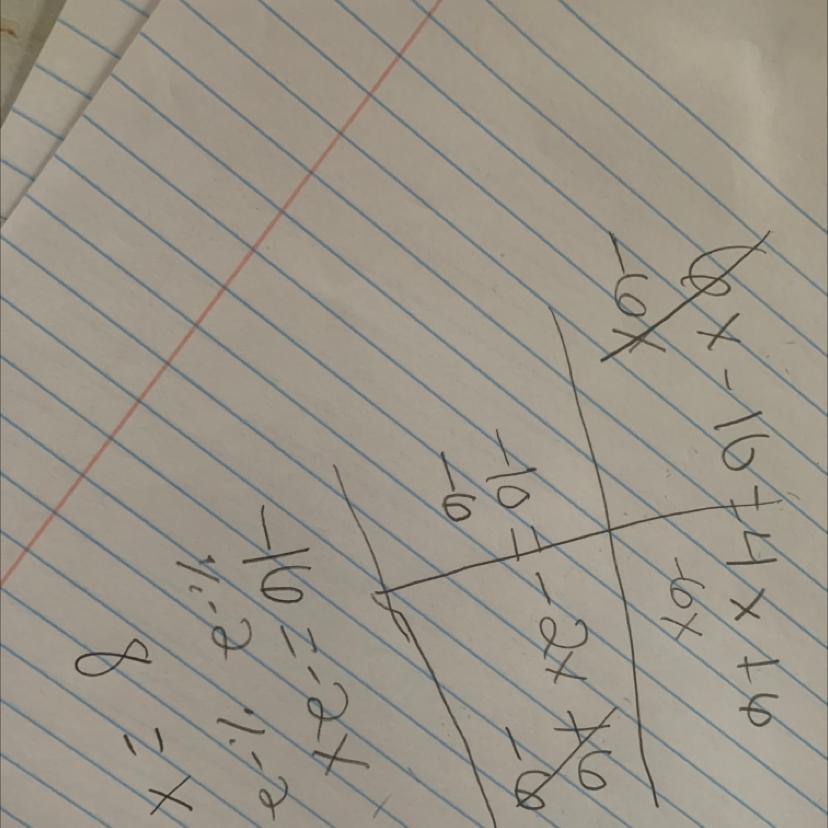 6x - 10 = 4x + 6
-6x -6x
-10 = -2x + 6
-6 -6
-16 = -2x
÷-2 ÷-2
8 = x